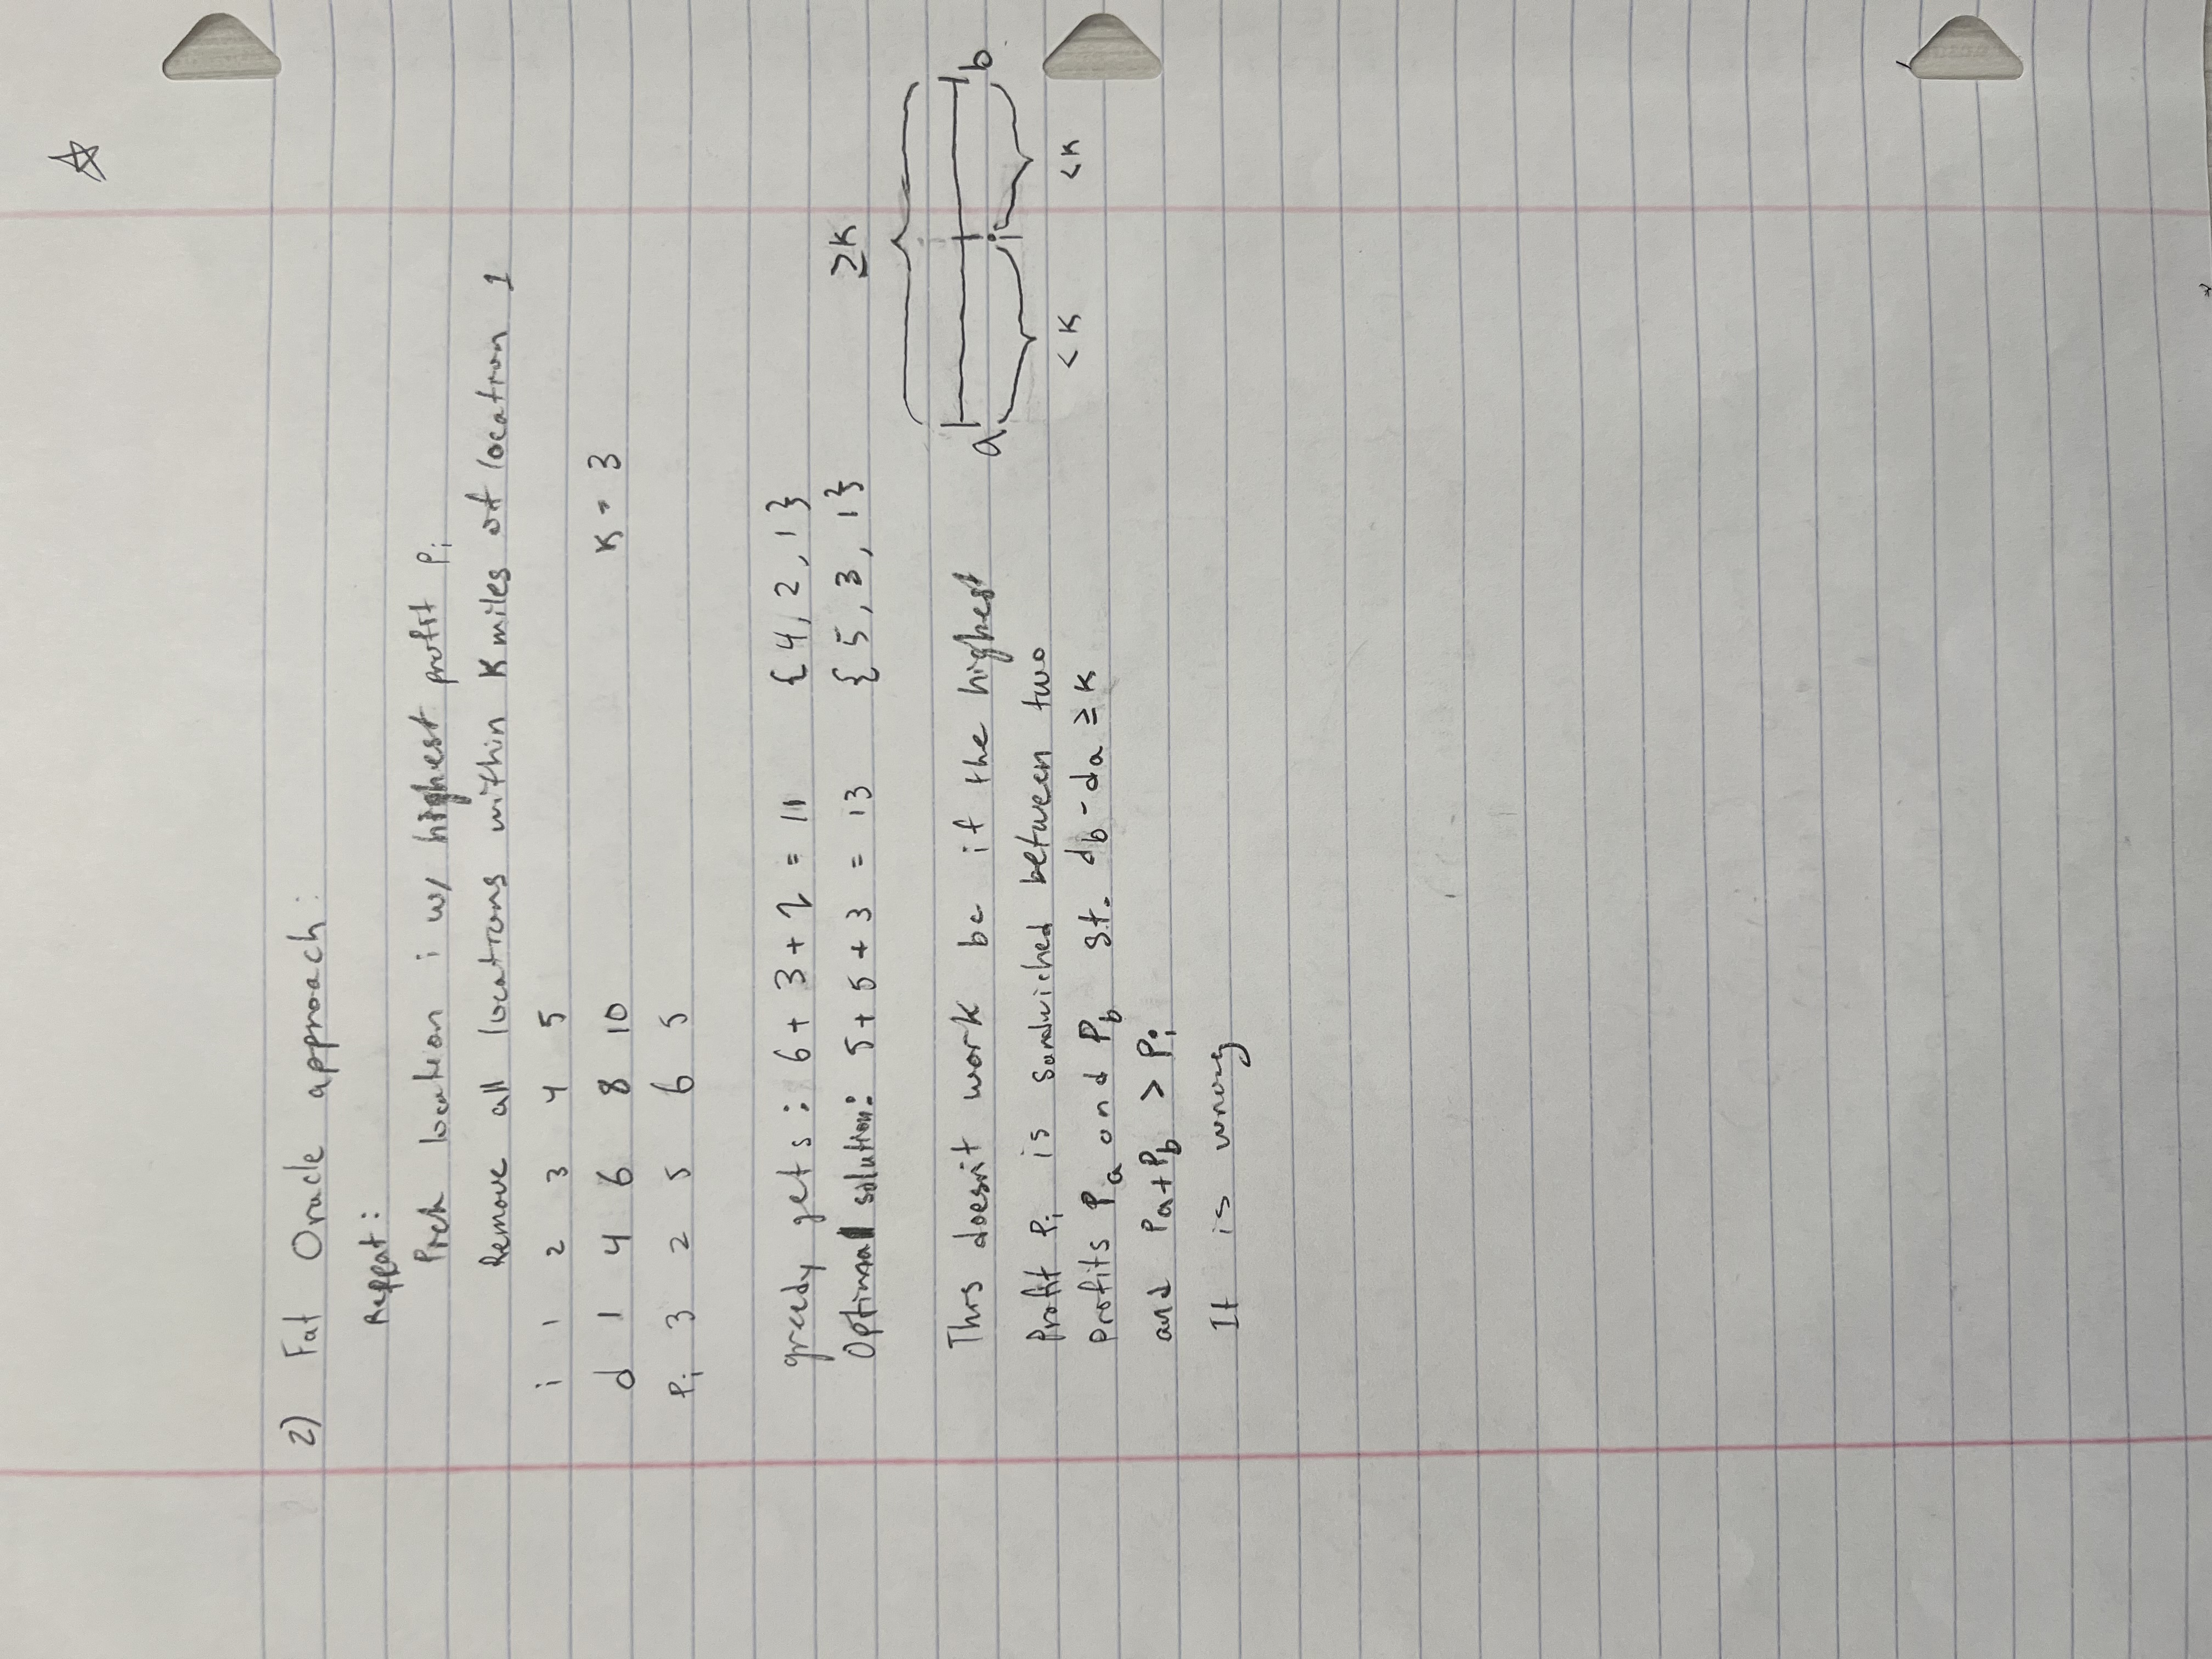 2) Fat Oracle approach:
Repeat:
Pick location i w/ highest profit Pi
Remove all locations within K miles of location 1
i 1 2 3 4 5
d 1 4 6 8 10
K = 3
Pi 3 2 5 6 5
greedy gets: 6 + 3 + 2 = 11 {4, 2, 1}
Optimal solution: 5 + 5 + 3 = 13 {5, 3, 1}
≥K
This doesn't work bc if the highest
Profit Pi is sandwiched between two
Profits Pa and Pb st. db - da ≥ K
and Pa + Pb > Pi
It is wrong
a i b
< K < K